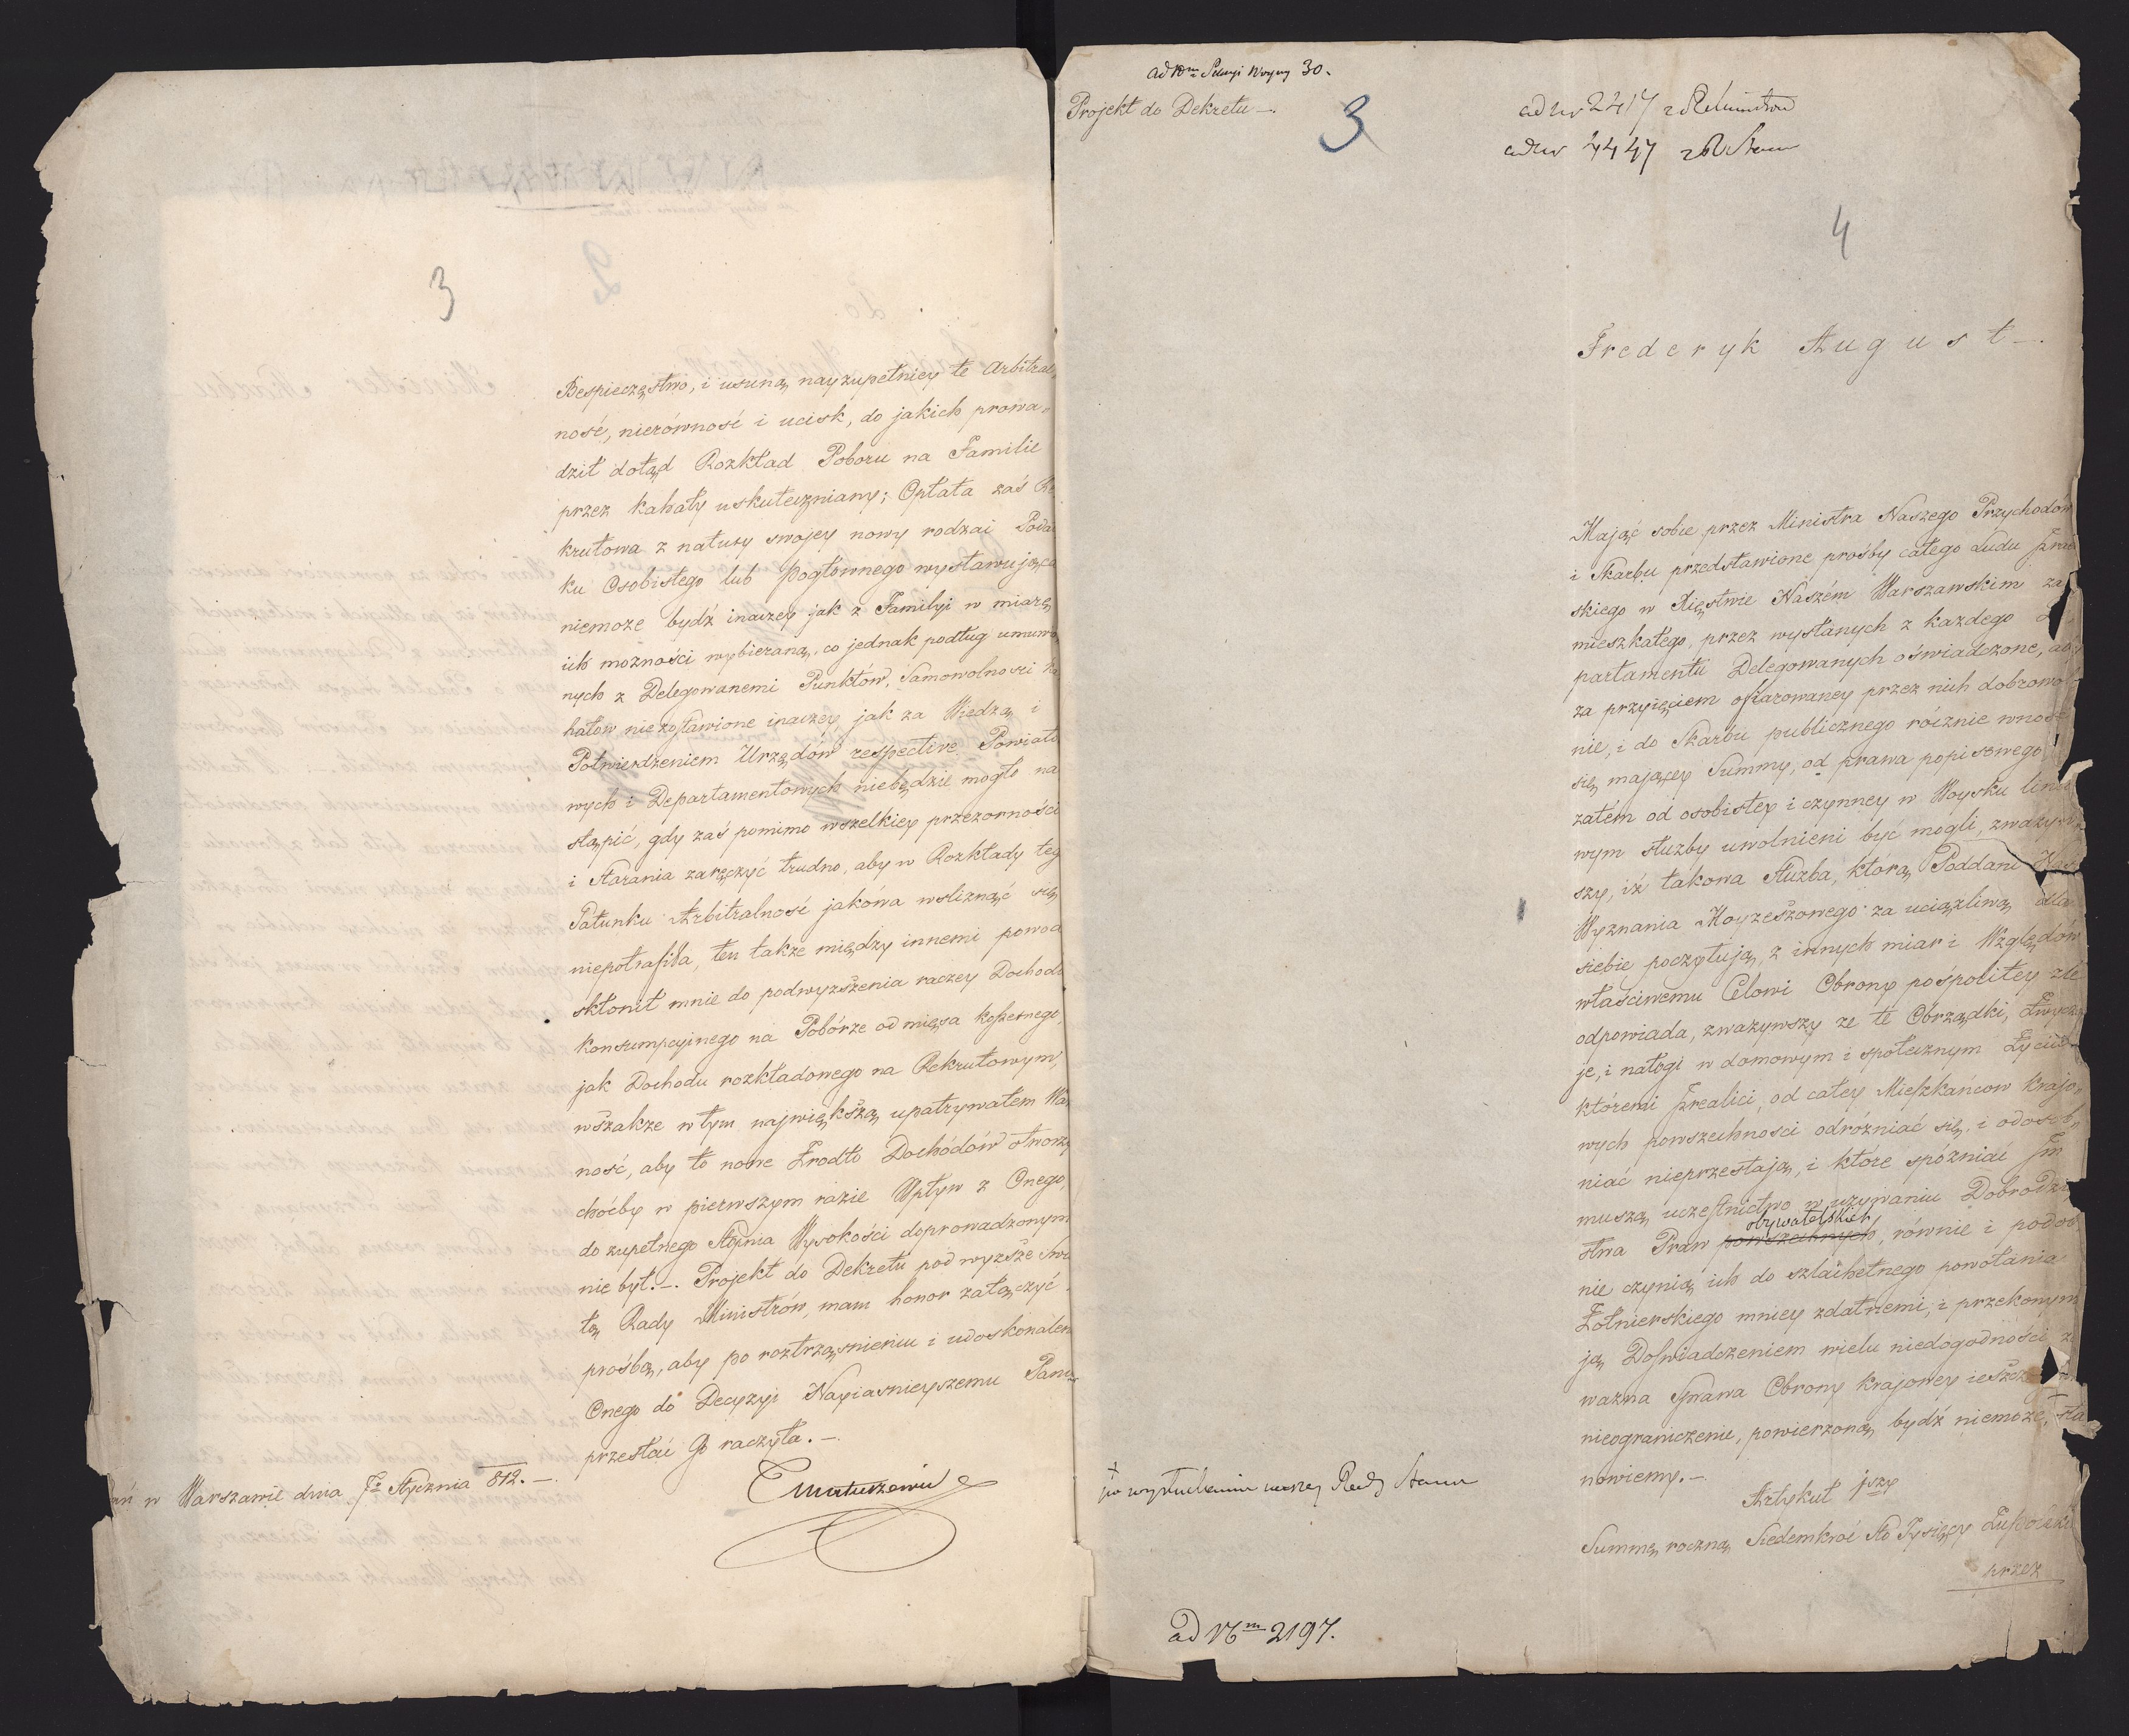 3
Bespieczęstwo, i usuną nayzupełniey te Arbitral„
ność, nierówność i ucisk, do jakich prowa„
dził dotąd Rozkład Poboru na Familie
przez kahały uskuteczniany; Opłata zaś Re
krutowa z natury swojey nowy rodzai Poda
ku Osobistego lub Pogłównego wystawująca
niemoże bydź inaczey jak z Familyi w miarę
ich możności wybieraną, co jednak podług umówo
nych z Delegowanemi Punktów, Samowolności Ka
hałow niezostawione inaczey jak za Wiedzą i
Potwierdzeniem Urzędów respective Powiato
wych i Departamentowych niebędzie mogło na
stąpić, gdy zaś pomimo wszelkiey przezorności
i Starania zaręczyć trudno, aby w Rozkłady teg
Gatunku Arbitralność jakówa wsliznąć się
niepotrafiła, ten także między innemi powod
skłonił mnie do podwyższenia raczey Dochodu
konsumpcyjnego na Poborze od mięsa koszernego,
jak Dochodu rozkładowego na Rekrutowym,
wszakże w tym największą upatrywałem Waż
ność, aby to nowe Źrodło Dochódów otworzyć
choćby w pierwszym razie Wpływ z Onego,
do zupełnego Stopnia Wysokości doprowadzonym
nie był.—. Projekt do Dekretu pod wyższe Świa
tło Rady Ministrów, mam honor załączyć
prośbą, aby po roztrząśnieniu i udoskonaleniu
Onego do Decyzyi Nayiasnieyszemu Panu
przesłać Go raczyła.—
w Warszawie dnia 7. Stycznia 812.—
Matuszewic
Projekt do Dekretu—.
3
ad Nr 2417
ad Nr 4447 z R. Stanu
4
Frederyk August—.
Mając sobie przez Ministra Naszego Przychodów
i Skarbu przedstawione prośby całego Ludu Jzrael
skiego w Xięstwie Naszém Warszawskim za
mieszkałego, przez wysłanych z każdego De
partamentu Delegowanych oświadczone, aby
za przyięciem ofiarowaney przez nich dobrowol
nie, i do Skarbu publicznego rócznie wnosić
się maiącey Summy, od prawa popisowego
zatém od osobistey i czynney w Woysku linio
wym służby uwolnieni być mogli, zważyw
szy, iż takowa Służba, ktorą Poddani Nas
Wyznania Moyżeszowego za uciążliwą dla
siebie poczytują, z innych miar i Względów
właściwemu Celowi Obrony pospolitey źle
odpowiada, zważywszy że te Obrządki, Zwycza
je, i nałogi w domowym i społecznym Życiu
któremi Jzraelici, od całey Mieszkańcow krajo„
wych powszechności odróżniać się, i odosob„
niać nieprzestają, i które spóźniać Jm
muszą uczestnictwo w używaniu Dobrodziey
obywatelskich
stwa Praw powszechnych, równie i podob
nie czynią ich do szlachetnego powołania
Żołnierskiego mniey zdatnemi, i przekonym
ją Doświadczeniem wielu niedogodności, że
ważna Sprawa Obrony krajowey ieszcze
nieograniczenie, powierzoną bydź niemoże, + sta
nowiemy.—
+
po wysłuchaniu naszey Rady Stanu
Artykuł 1szy
Summę roczną Siedemkroć Sto Tysięcy Złpolski
przez
ad Nm 2197.